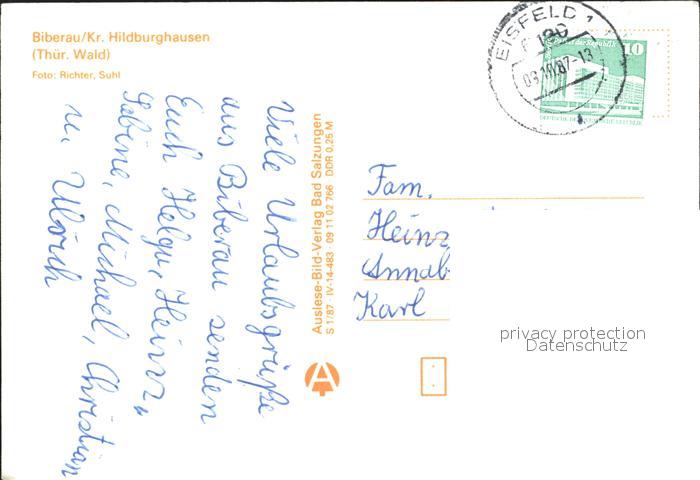 Biberau/Kr. Hildburghausen
(Thür. Wald)
Foto: Richter, Suhl
Viele Urlaubsgrüße
aus Biberau senden
Euch Helga, Heinz,
Sabine, Michael, Christian
u. Ulrich
Auslese-Bild-Verlag Bad Salzungen
S 1/87 · IV-14-483 · 09 11 02 766 DDR 0,25 M
EISFELD 1
-13
10
Fam.
Heinz
Annab
Karl
privacy protection
Datenschutz